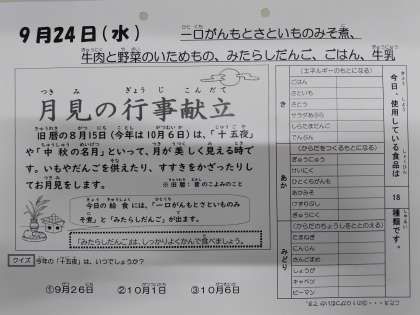 9月24日（水）
一口がんもとさといものみそ煮、
牛肉と野菜のいためもの、みたらしだんご、ごはん、牛乳
月見の行事献立
旧暦の8月15日（今年は10月6日）は、「十五夜」
や「中秋の名月」といって、月が美しく見える時で
す。いもやだんごを供えたり、すすきをかざったりし
てお月見をします。
※旧暦：昔のこよみのこと
今日の給食には、「一口がんもとさといものみ
そ煮」と「みたらしだんご」が出ます。
「みたらしだんご」は、しっかりよくかんで食べましょう。
クイズ 今年の「十五夜」は、いつでしょうか？
①9月26日 ②10月1日 ③10月6日
今日、使用している食品は 18 種類です。
き
（エネルギーのもとになる）
ごはん
さといも
さとう
サラダあぶら
しらたまだんご
でんぷん
あか
（からだをつくるもとになる）
ぎゅうにゅう
ひとくちがんも
あかみそ
けずりぶし
ぎゅうにく
みどり
（からだのちょうしをととのえる）
たまねぎ
にんじん
さんどまめ
しょうが
キャベツ
ピーマン